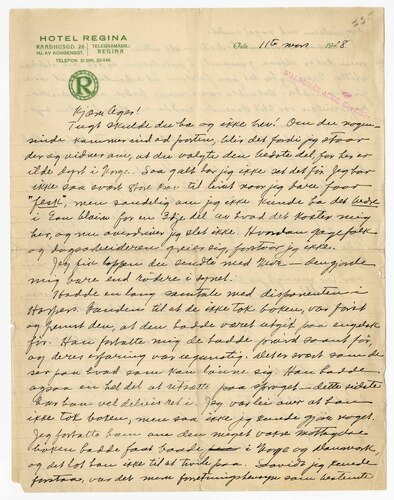 25-
HOTEL REGINA
RAADHUSGD. 26
HJ. AV KONGENSGT.
TELEGRAMADR.:
REGINA
TELEFON
R
Oslo 11te mars 1928
Kjære Ager!
Tugt skulde du ha og ikke brev! Om du nogen-
sinde kommer ind ad porten, blir det fordi jeg staar
der og vidner om, at du valgte den bedste del, for her er
ilde dyrt i Norge. Saa galt har jeg ikke set det før. Jeg har
ikke saa svært store krav til livet naar jeg bare faar
"flesk", men sandelig om jeg ikke kunde ha det bedre
i Eau Claire for en 3dje del av hvad det koster mig
her, og nu overdriver jeg slet ikke. Hvordan gagefolk
og dagsarbeideren greier sig, forstaar jeg ikke.
Jeg fik loppen du sendte med - den gjorde
mig bare end rødere i synet.
Hadde en lang samtale med disponenten i
Harpers. Grunden til at de ikke tok boken, var først
og fremst den, at den hadde været utgit paa engelsk
før. Han fortalte mig de hadde prøvd saant før,
og deres erfaring var ugunstig. Det er svært som de
ser paa hvad som kan lønne sig. Han hadde
ogsaa en hel del at utsætte paa sproget - dette sidste
kar han vel delvis ret i. Jeg var lei over at han
ikke tok boken, men saa ikke jeg kunde gjøre noget.
Jeg fortalte ham om den meget vakre mottagelse
boken hadde faat baade i Norge og Danmark,
og det lot han ikke til at tvile paa. Saavidt jeg kunde
forstaa, var det mere forretningshensyn som bestemte